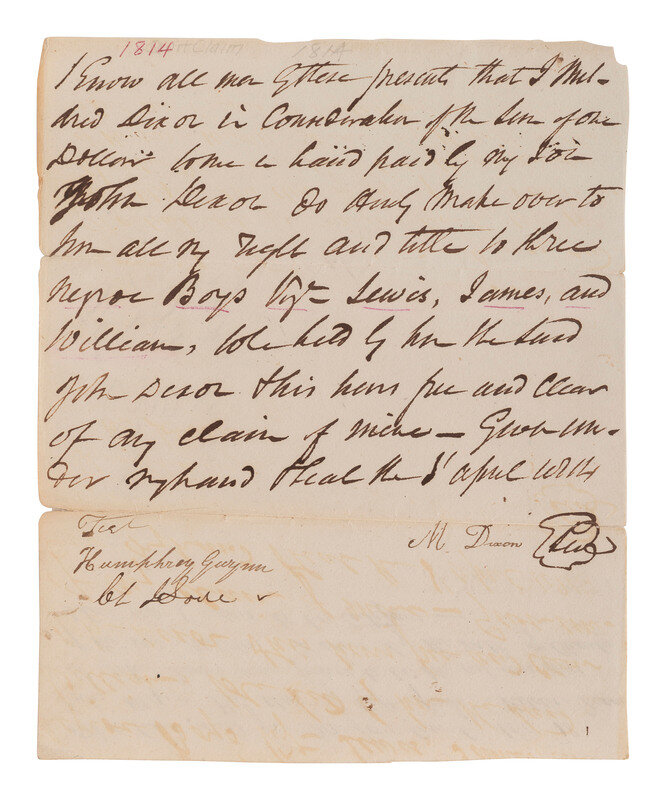 1814
1814
Know all men by these presents that I Mil-
dred Dixon in Consideration of the Sum of one
Dollar to me in hand paid by my Son
John Dixon do herby Make over to
him all my right and title to three
negroe Boys Viz Lewis, James, and
William, to be held by him the said
John Dixon & his heirs free and Clear
of any claim of mine - Given un-
der my hand & Seal the 8 April 1814
Test
M Dixon Seal
Humphrey Gwynn